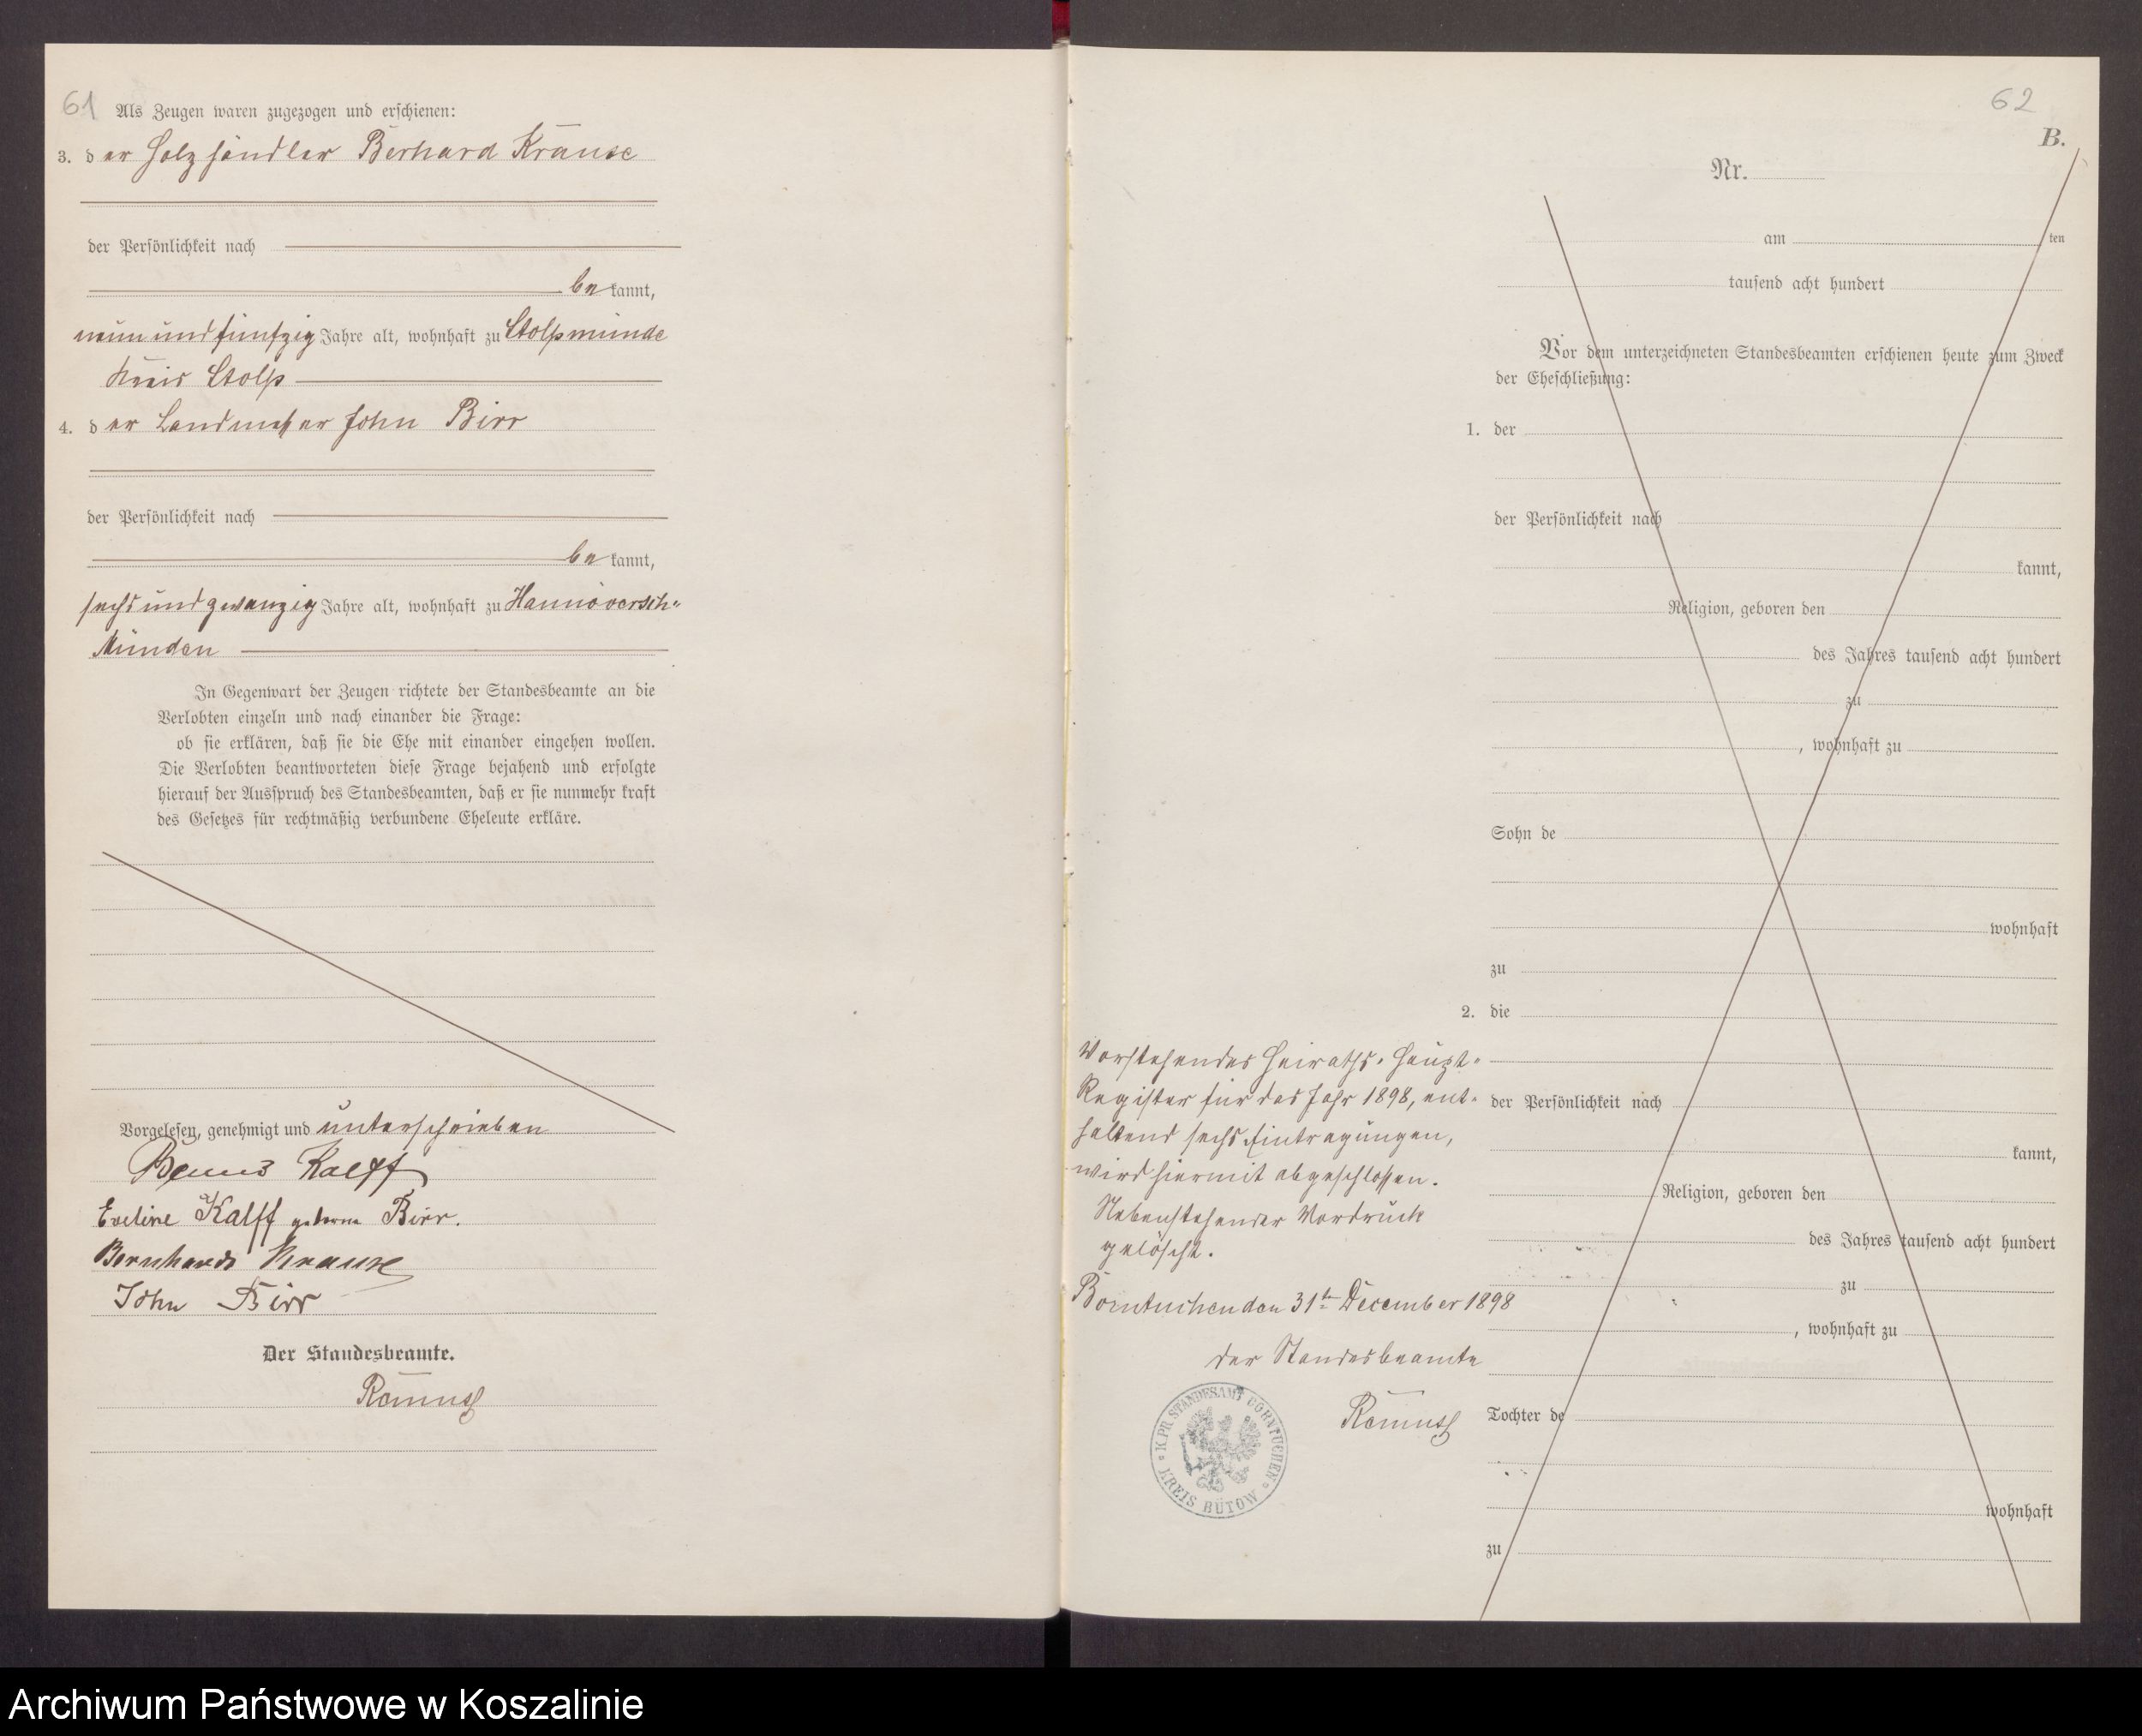 61
Als Zeugen waren zugezogen und erschienen:
3. der Holzhändler Berhard Krause
der Persönlichkeit nach
be kannt,
neunundfünfzig Jahre alt, wohnhaft zu Stolpmünde
Kreis Stolp
4. der Landmesser John Birr
der Persönlichkeit nach
be kannt,
sechsundzwanzig Jahre alt, wohnhaft zu Hannoversch-
Münden
In Gegenwart der Zeugen richtete der Standesbeamte an die
Verlobten einzeln und nach einander die Frage:
ob sie erklären, daß sie die Ehe mit einander eingehen wollen.
Die Verlobten beantworteten diese Frage bejahend und erfolgte
hierauf der Ausspruch des Standesbeamten, daß er sie nunmehr kraft
des Gesetzes für rechtmäßig verbundene Eheleute erkläre.
Vorgelesen, genehmigt und unterschrieben
Kalff
Eveline Kalff geborne Birr.
Bernhard Krause
John Birr
Der Standesbeamte.
62
B.
Nr.
am ten
tausend acht hundert
Vor dem unterzeichneten Standesbeamten erschienen heute zum Zweck
der Eheschließung:
1. der
der Persönlichkeit nach
kannt,
Religion, geboren den
des Jahres tausend acht hundert
zu
, wohnhaft zu
Sohn de
wohnhaft
zu
2. die
der Persönlichkeit nach
kannt,
Religion, geboren den
des Jahres tausend acht hundert
zu
, wohnhaft zu
Tochter de
wohnhaft
zu
Vorstehendes Heiraths-Haupt-
Register für das Jahr 1898, ent-
haltend sechs Eintragungen,
wird hiermit abgeschlossen.
Nebenstehender Vordruck
gelöscht.
Borntuchen den 31ten December 1898
der Standesbeamte
K. PR. STANDESAMT BORNTUCHEN
KREIS BÜTOW
Archiwum Państwowe w Koszalinie